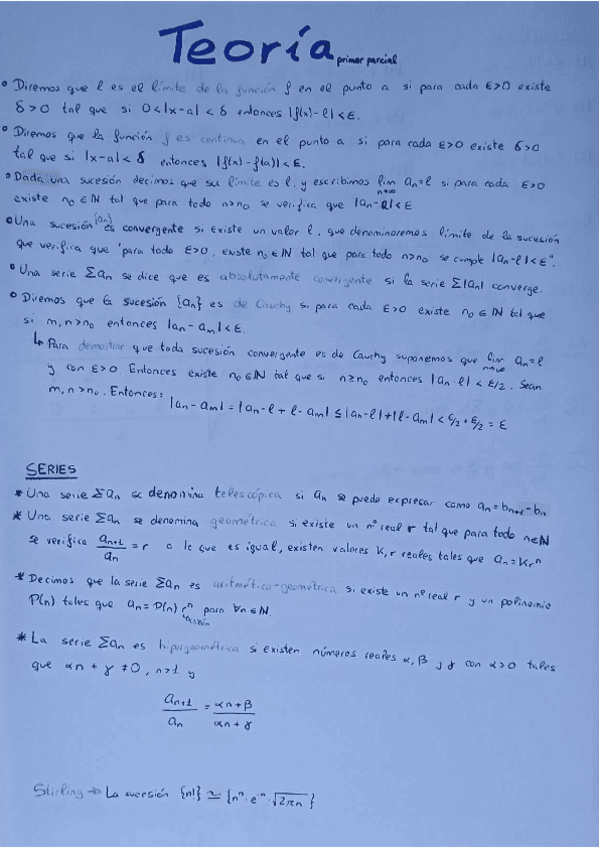 Teoría primer parcial
• Diremos que l es el límite de la función f en el punto a si para cada ε>0 existe
δ>0 tal que si 0<|x-a|<δ entonces |f(x)-l|<ε.
• Diremos que la función f es continua en el punto a si para cada ε>0 existe δ>0
tal que si |x-a|<δ entonces |f(x)-f(a)|<ε.
• Dada una sucesión decimos que su límite es l, y escribimos lim an=l si para cada ε>0
n→∞
existe n₀∈ℕ tal que para todo n>n₀ se verifica que |an-l|<ε
• Una sucesión {an} es convergente si existe un valor l, que denominaremos límite de la sucesión
que verifica que "para todo ε>0, existe n₀∈ℕ tal que para todo n>n₀ se cumple |an-l|<ε".
• Una serie Σan se dice que es absolutamente convergente si la serie Σ|an| converge.
• Diremos que la sucesión {an} es de Cauchy si para cada ε>0 existe n₀∈ℕ tal que
si m,n>n₀ entonces |an-am|<ε.
↳ Para demostrar que toda sucesión convergente es de Cauchy suponemos que lim an=l
n→∞
y con ε>0 Entonces existe n₀∈ℕ tal que si n≥n₀ entonces |an-l|<ε/2. Sean
m,n>n₀. Entonces:
|an-am|=|an-l+l-am|≤|an-l|+|l-am|<ε/2+ε/2=ε
SERIES
* Una serie Σan se denomina telescópica si an se puede expresar como an=bn+1-bn
* Una serie Σan se denomina geométrica si existe un nº real r tal que para todo n∈ℕ
se verifica an+1/an=r o lo que es igual, existen valores K,r reales tales que an=Krⁿ
* Decimos que la serie Σan es aritmético-geométrica si existe un nº real r y un polinomio
P(n) tales que an=P(n)rⁿ para ∀n∈ℕ
↳razón
* La serie Σan es hipergeométrica si existen números reales α,β y γ con α>0 tales
que αn+γ≠0, n≥1 y
an+1/an = αn+β/αn+γ
Stirling → La sucesión {n!} ≃ {nⁿ·e⁻ⁿ·√2πn}